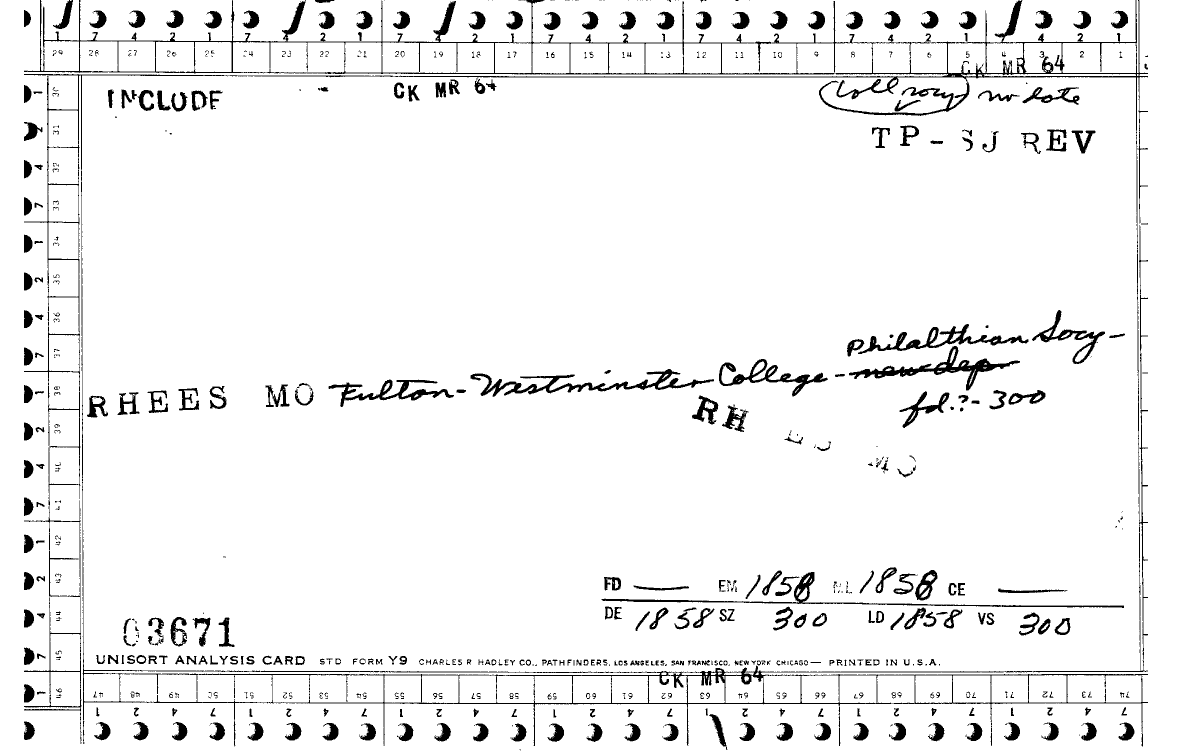 1 7 4 2 1 7 4 2 1 7 4 2 1 7 4 2 1 7 4 2 1 7 4 2 1 7 4 2 1
29 28 27 26 25 24 23 22 21 20 19 18 17 16 15 14 13 12 11 10 9 8 7 6 5 4 3 2 1
CK MR 64
INCLUDE
CK MR 64
Coll socy no date
TP - SJ REV
1 2 4 7 1 2 4 7 1 2 4 7 1 2 4 7 1
30 31 32 33 34 35 36 37 38 39 40 41 42 43 44 45 46
Philalthian Socy-
RHEES MO Fulton - Westminster College - new dep
fd.? - 300
RH ES MO
FD — EM 1858 ML 1858 CE —
DE 1858 SZ 300 LD 1858 VS 300
03671
UNISORT ANALYSIS CARD STD FORM Y9 CHARLES R HADLEY CO., PATHFINDERS, LOS ANGELES, SAN FRANCISCO, NEW YORK CHICAGO — PRINTED IN U.S.A.
CK MR 64
47 48 49 50 51 52 53 54 55 56 57 58 59 60 61 62 63 64 65 66 67 68 69 70 71 72 73 74
1 2 4 7 1 2 4 7 1 2 4 7 1 2 4 7 1 2 4 7 1 2 4 7 1 2 4 7